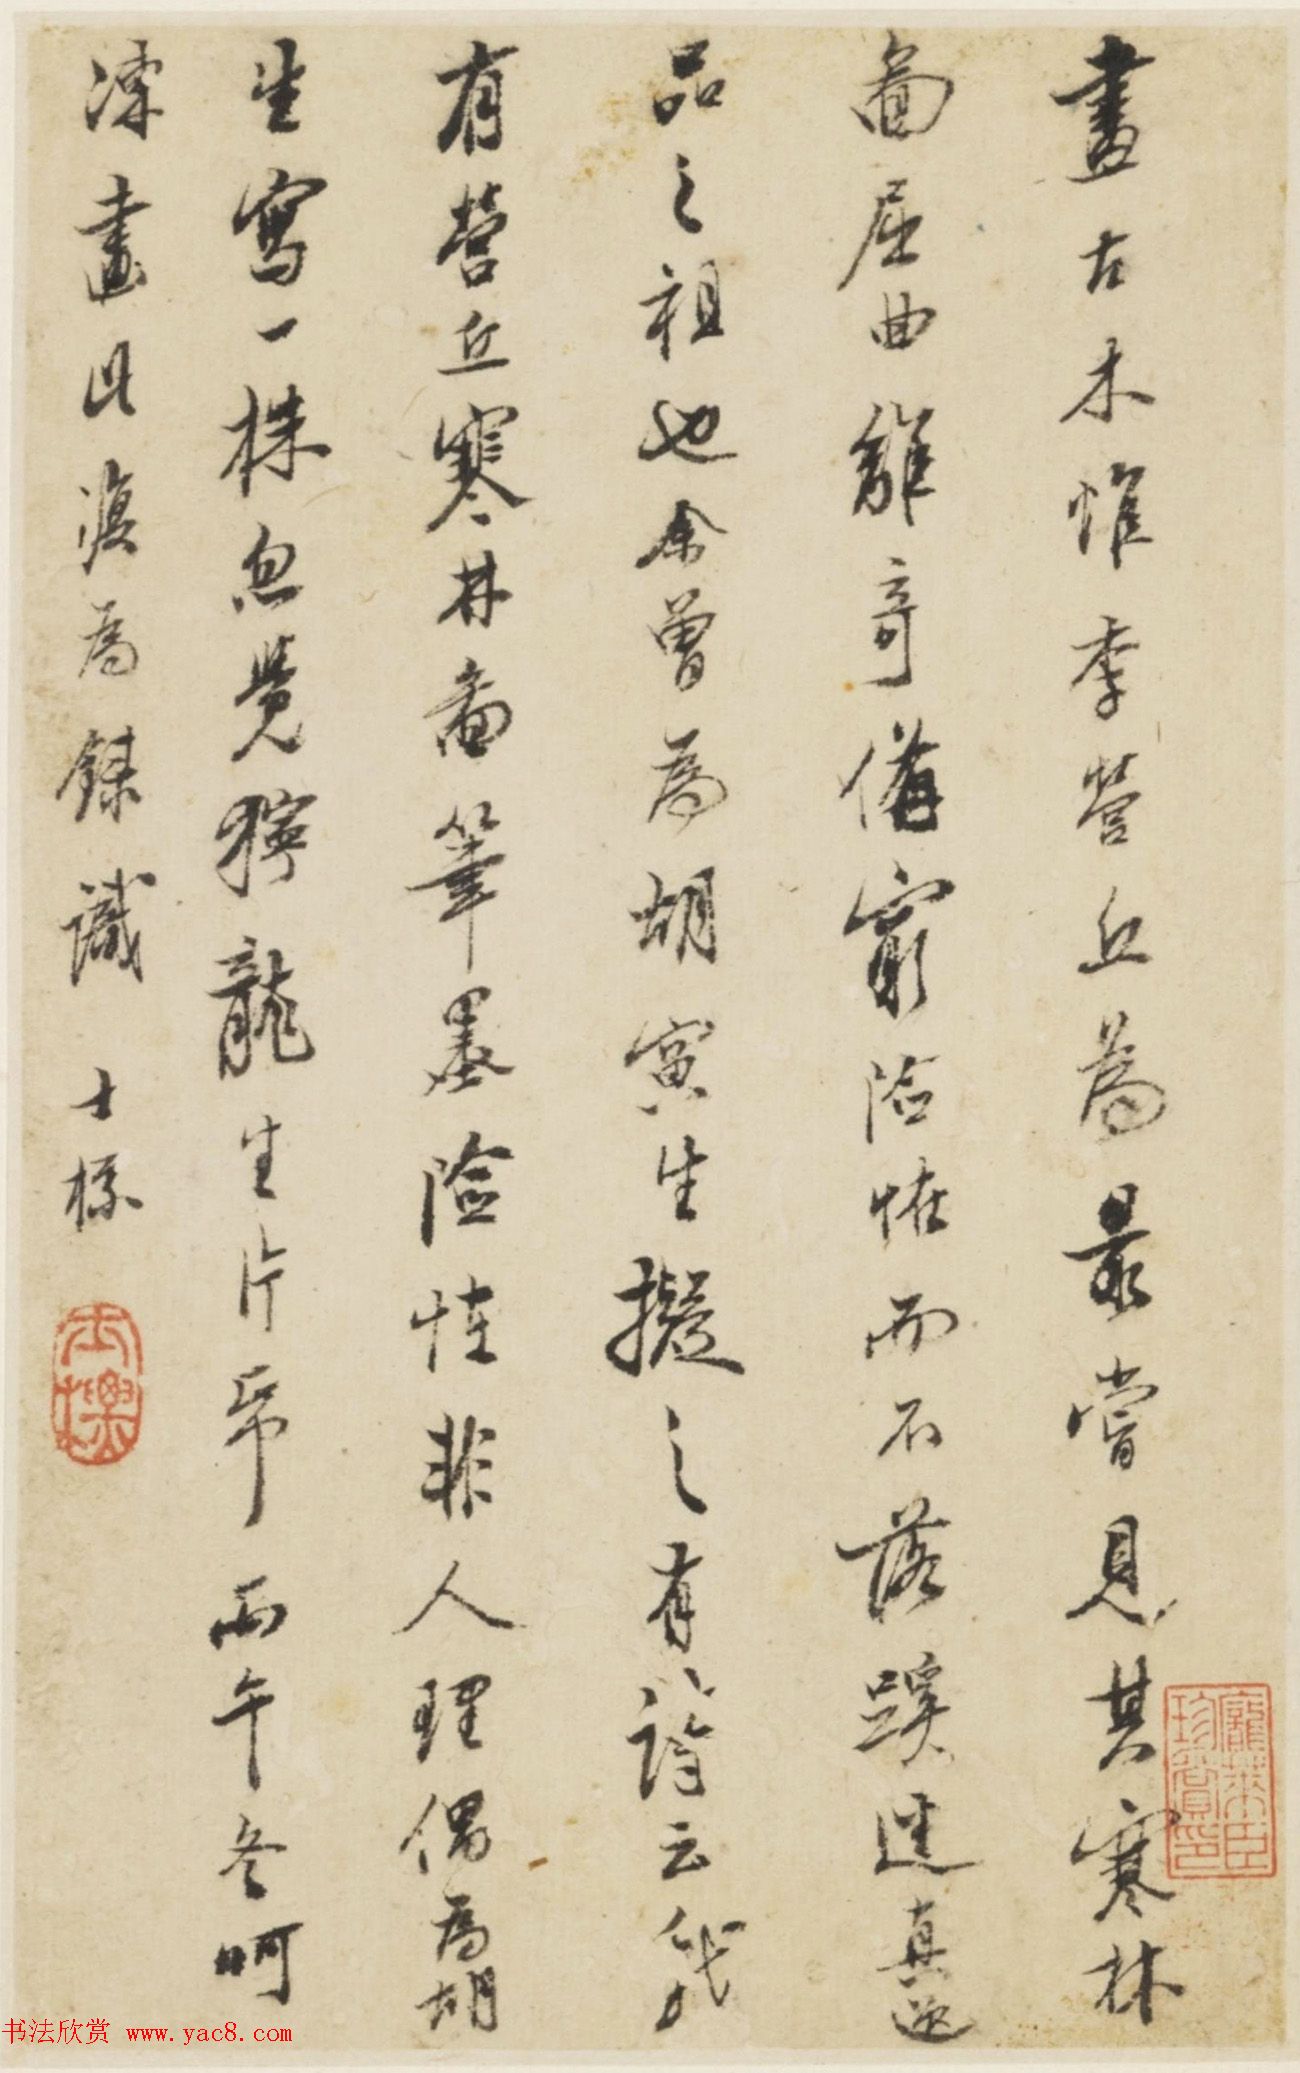 畫古木惟李營丘為最嘗見其寒林
圖屈曲離奇備窮險怪而不落蹊逕真逸
品之祖也余曾為胡寅生擬之有詩云我
有營丘寒林圖筆墨險怪非人理偶為胡
生寫一株忽覺獰龍生片帋丙午冬呵
凍畫此漫為錄識 士標
士標
龐萊臣珍賞印
书法欣赏 www.yac8.com